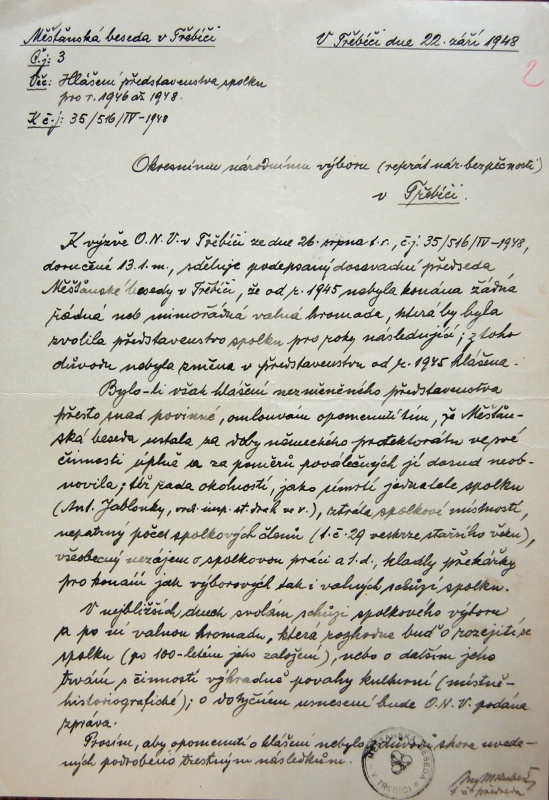 Měšťanská beseda v Třebíči
V Třebíči dne 22. září 1948
Č.j: 3
2
Věc: Hlášení představenstva spolku
pro r. 1946 až 1948.
K č.j: 35/516/IV-1948
Okresnímu národnímu výboru (referát nár. bezpečnosti)
v Třebíči.
K výzvě O.N.V. v Třebíči ze dne 26. srpna t.r., č.j. 35/516/IV-1948,
doručené 13.t.m., sděluje podepsaný dosavadní předseda
Měšťanské besedy v Třebíči, že od r. 1945 nebyla konána žádná
řádná neb mimořádná valná hromada, která by byla
zvolila představenstvo spolku pro roky následující; z toho
důvodu nebyla změna v představenstvu od r. 1945 hlášena.
Bylo-li však hlášení nezměněného představenstva
přesto snad povinné, omlouvám opomenutí tím, že Měšťan-
ská beseda ustala za doby německého protektorátu ve své
činnosti úplně a za poměrů poválečných jí dosud neob-
novila; též řada okolností, jako úmrtí jednatele spolku
(Ant. Jablonky, vrch. insp. st. drah ve v.), ztráta spolkové místnosti,
nepatrný počet spolkových členů (t.č. 29 veskrze staršího věku),
všeobecný nezájem o spolkovou práci a t.d., kladly překážky
pro konání jak výborových tak i valných schůzí spolku.
V nejbližších dnech svolám schůzi spolkového výboru
a po ní valnou hromadu, která rozhodne buď o rozejití se
spolku (po 100-letém jeho založení), nebo o dalším jeho
trvání s činností výhradně povahy kulturní (místně-
historiografické); o dotyčném usnesení bude O.N.V. podána
zpráva.
Prosím, aby opomenutí o hlášení nebylo z důvodů shora uvede-
ných podrobeno trestným následkům.
MĚŠŤANSKÁ BESEDA
V TŘEBÍČI
t.č. předseda